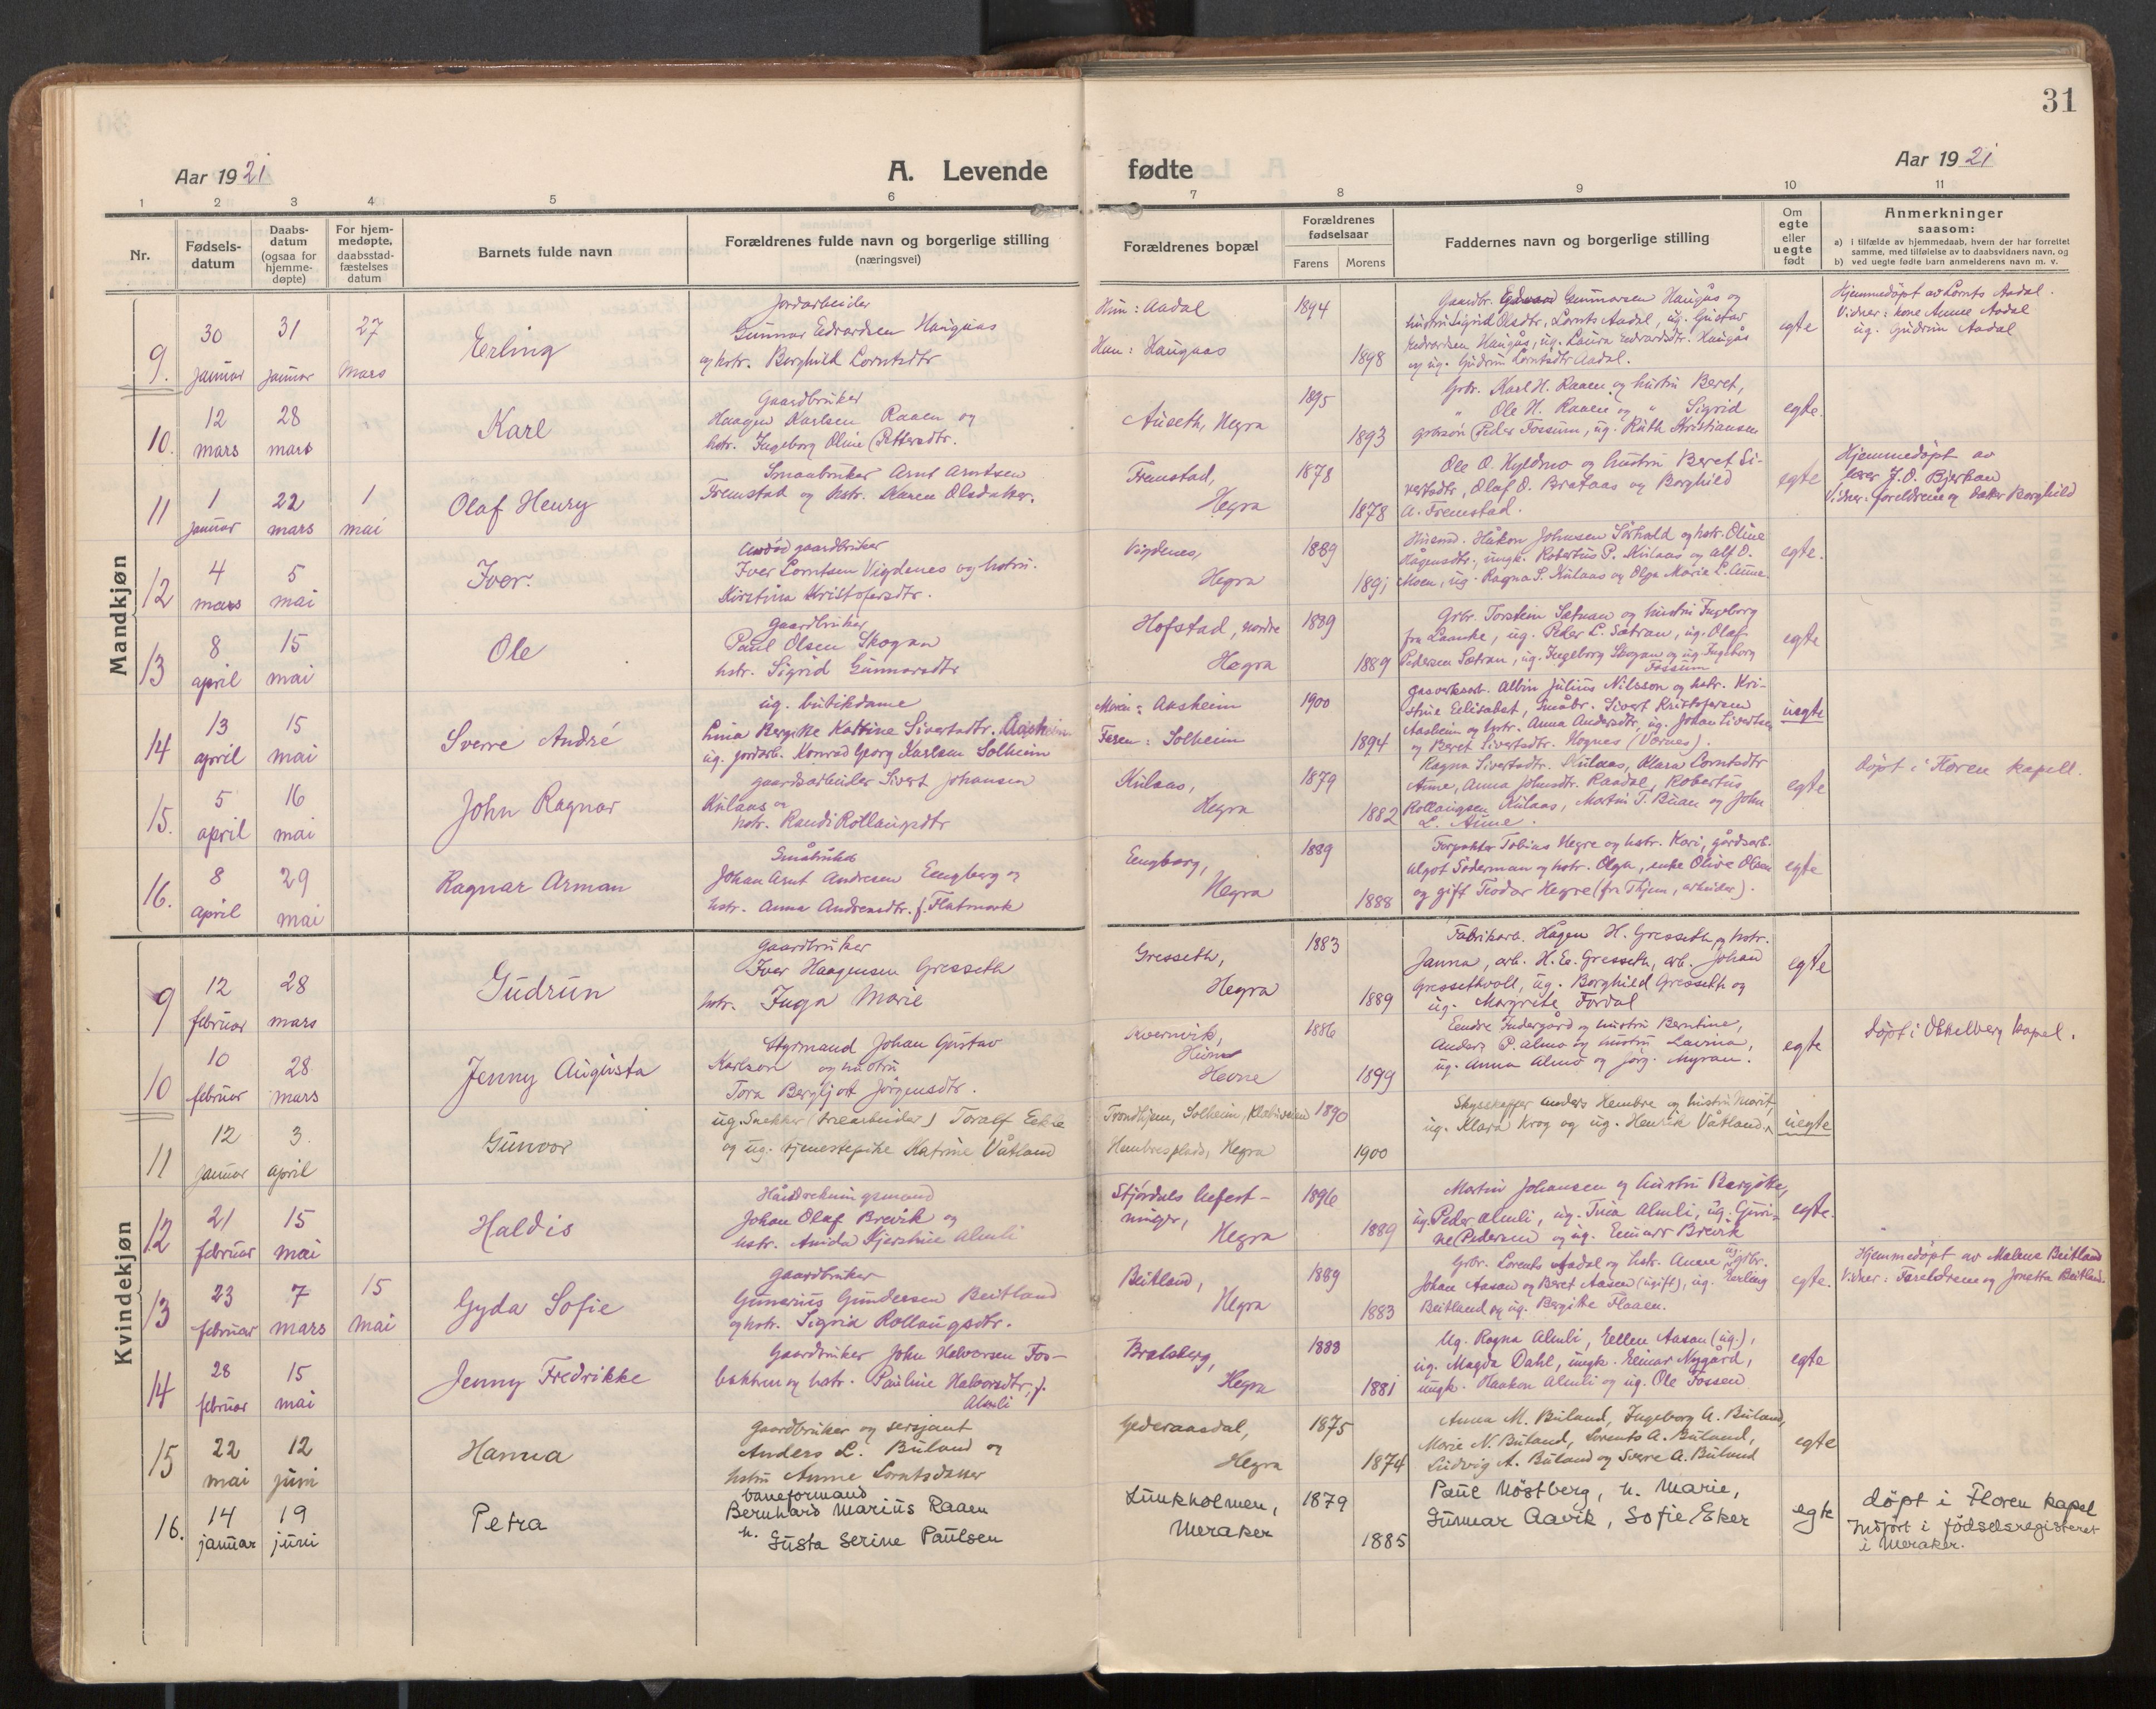 31
Aar 1921
A. Levende
fødte
Aar 1921
1 2 3 4 5 6 7 8 9 10 11
Nr.
Fødsels-
datum
Daabs-
datum
(ogsaa for
hjemme-
døpte)
For hjem-
medøpte,
daabsstad-
fæstelses
datum
Barnets fulde navn
Forældrenes fulde navn og borgerlige stilling
(næringsvei)
Forældrenes bopæl
Forældrenes
fødselsaar
Farens Morens
Faddernes navn og borgerlige stilling
Om
egte
eller
uegte
født
Anmerkninger
saasom:
a) i tilfælde av hjemmedaab, hvem der har forrettet
samme, med tilføielse av to daabsvidners navn, og
b) ved uegte fødte barn anmelderens navn m. v.
Mandkjøn
9.
30 januar
31 januar
27 Mars
Erling
Jordarbeider
Gunnar Edvardsen Haugaas
og hstr. Borghild Lorntsdtr
Hun: Aadal
Han: Haugaas
1894
1898
Gaardbr. Edvard Gunnarsen Haugås og
hustru Sigrid Olsdtr, Lornts Aadal, ug. Gustav
Edvardsen Haugås, ug. Laura Edvardsdtr. Haugås
og ug. Gudrun Lorntsdtr Aadal.
egte
Hjemmedöpt av Lornts Aadal.
Vidner: kone Anne Aadal
ug. Gudrun Aadal
10.
12 mars
28 mars
Karl
Gaardbruker
Haagen Karlsen Raaen og
hstr. Ingeborg Oline Pettersdtr.
Auseth, Hegra
1895
1893
Grbr. Karl H. Raaen og hustru Beret,
" Ole H. Raaen og " Sigrid
grbrsön Peder Fossum, ug. Ruth Kristiansen
egte.
11
1 januar
22 mars
1 mai
Olaf Henry
Smaabruker Arnt Arntsen
Fremstad og hstr. Karen Olsdatter.
Fremstad,
Hegra
1878
1878
Ole O. Kyldmo og hustru Beret Si-
vertsdtr, Olaf O. Brataas og Borghild
A. Fremstad.
egte
Hjemmedöpt av
lærer J. O. Bjerkan
Vidner: foreldrene og datter Borghild
12
4 mars
5 mai
Iver.
gaardbruker
Iver Lorntsen Vigdenes og hstru.
Kirstina Kristofersdtr.
Vigdenes,
Hegra
1889
1891
Husmd. Håkon Johnsen Sörhald og hstr. Oline
Hågensdtr, ungk. Robertus P. Kulaas og Alf O.
Moen, ug. Ragna S. Kulaas og Olga Marie L. Aune.
egte.
13
8 april
15 mai
Ole
gaardbruker
Paul Olsen Skogan
hstr. Sigrid Gunnarsdtr
Hofstad, nordre
Hegra
1889
1889
Grbr. Torstein Sætran og hustru Ingeborg
fra Laanke, ug. Peder L. Sætran, ug. Olaf
Pedersen Sætran, ug. Ingeborg Skogan og ug. Ingeborg
Fossum
egte
14
13 april
15 mai
Sverre André
ug. butikdame
Lina Bergitte Katrine Sivertsdtr. Aasheim
ug. jordarb. Konrad Georg Karlsen Solheim
Moren: Aasheim
Faren: Solheim
1900
1894
gasverksarb. Albin Julius Nilsson og hstr. Kri-
stine Elisabet, småbr. Sivert Kristofersen
Aasheim og hstr. Anna Andersdtr, ug. Johan Sivertsen
og Beret Sivertsdtr. Hognes (Værnes).
uegte
15.
5 april
16 mai
John Ragnar
gaardsarbeider Sivert Johansen
Kulaas og
hstr. Randi Rollaugsdtr
Kulaas,
Hegra
1879
1882
Ragna Sivertsdtr. Kulaas, Klara Lorntsdtr
Aune, Anna Johnsdtr. Raadal, Robertus
Rollaugsen Kulaas, Martin T. Buan og John
L. Aune.
egte
döpt i Floren kapell.
16.
8 april
29 mai
Ragnar Arman
Småbruker
Johan Arnt Andresen Engberg og
hstr. Anna Andreasdtr. f. Flatmark
Engberg,
Hegra
1889
1888
Forpakter Tobias Hegre og hstr. Kari, gårdsarb.
Algot Söderman og hstr. Olga, enke Olive Olsen
og gift Teodor Hegre (fra Thjem, arbeider).
egte
Kvindekjøn
9
12 februar
28 mars
Gudrun
Gaardbruker
Iver Haagensen Gresseth
hstr. Inga Marie
Gresseth,
Hegra
1883
1889
Fabrikarb. Hågen H. Gresseth og hstr.
Janna, arb. H. E. Gresseth, arb. Johan
Gressethvoll, ug. Borghild Gresseth og
ug. Margrete Fordal
egte
10
10 februar
28 mars
Jenny Augusta
Styrmand Johan Gustav
Karlson og hustru
Tora Bergljot Jörgensdtr.
Kvernvik,
Hevne
1886
1899
Endre Indergård og hustru Berntine,
Anders P. Almo og hustru Lavina,
ug. Anna Almo og Jörg. Myran.
egte
döpt i Okkelberg kapel.
11
12 januar
3. april
Gunvor
ug. Snekker (træarbeider) Toralf Eckle
og ug. tjenestepike Katrine Våtland
Trondhjem, Solheim,
Hembresplads, Hegra
1890
1900
Skysskaffer Anders Hembre og hustru Marit,
ug. Klara Krog og ug. Henrik Våtland
uegte
12
21 februar
15 mai
Haldis
Håndverkningsmand
Johan Olaf Brevik og
hstr. Anida Kjerstine Almli
Stjördals befest-
ninger,
Hegra
1896
1889
Martin Johansen og hustru Bergitte,
ug. Peder Almli, ug. Tina Almli, ug. Guri-
ne Pedersen og ug. Einarr Brevik
egte.
13
23 februar
7 mars
15 mai
Gyda Sofie
Gaardbruker
Gunerius Gundersen Beitland
og hstr. Sigrid Rollaugsdtr.
Beitland,
Hegra
1889
1883
Grbr. Lorents Aadal og hstr. Anne, ug. grbr.
Johan Aasan og Beret Aasen (ugift), ug. Erling
Beitland og ug. Bergitte Flaaen.
egte.
Hjemmedöpt av Malena Beitland
Vidner: Foreldrene og Jonetta Beitland.
14
28 februar
15 mai
Jenny Fredrikke
Gaardbruker John Halvorsen Fos-
bakken og hstr. Pauline Halvorsdtr, f.
Almli
Bratsberg,
Hegra
1888
1881
Ug. Ragna Almli, Ellen Aasan (ug.),
ug. Magda Dahl, ungk. Einar Nygård,
ungk. Haakon Almli og ug. Ole Fossen
egte
15
22 mai
12 juni
Hanna
gaardbruker og sersjant
Anders L. Buland og
hstru Anne Lorntsdatter
Gederaasdal,
Hegra
1875
1874
Anna M. Buland, Ingeborg A. Buland,
Marie N. Buland, Lorents A. Buland,
Ludvig A. Buland og Sverre A. Buland
egte
16.
14 januar
19 juni
Petra
baneformand
Bernhard Marius Raaen
h. Gusta Serine Paulsen
Lunkholmen,
Meraker
1879
1885
Paul Nöstberg, h. Marie,
Gunnar Aavik, Sofie Eker
egte
döpt i Floren kapel
Indfört i födselsregisteret
i Meraker.